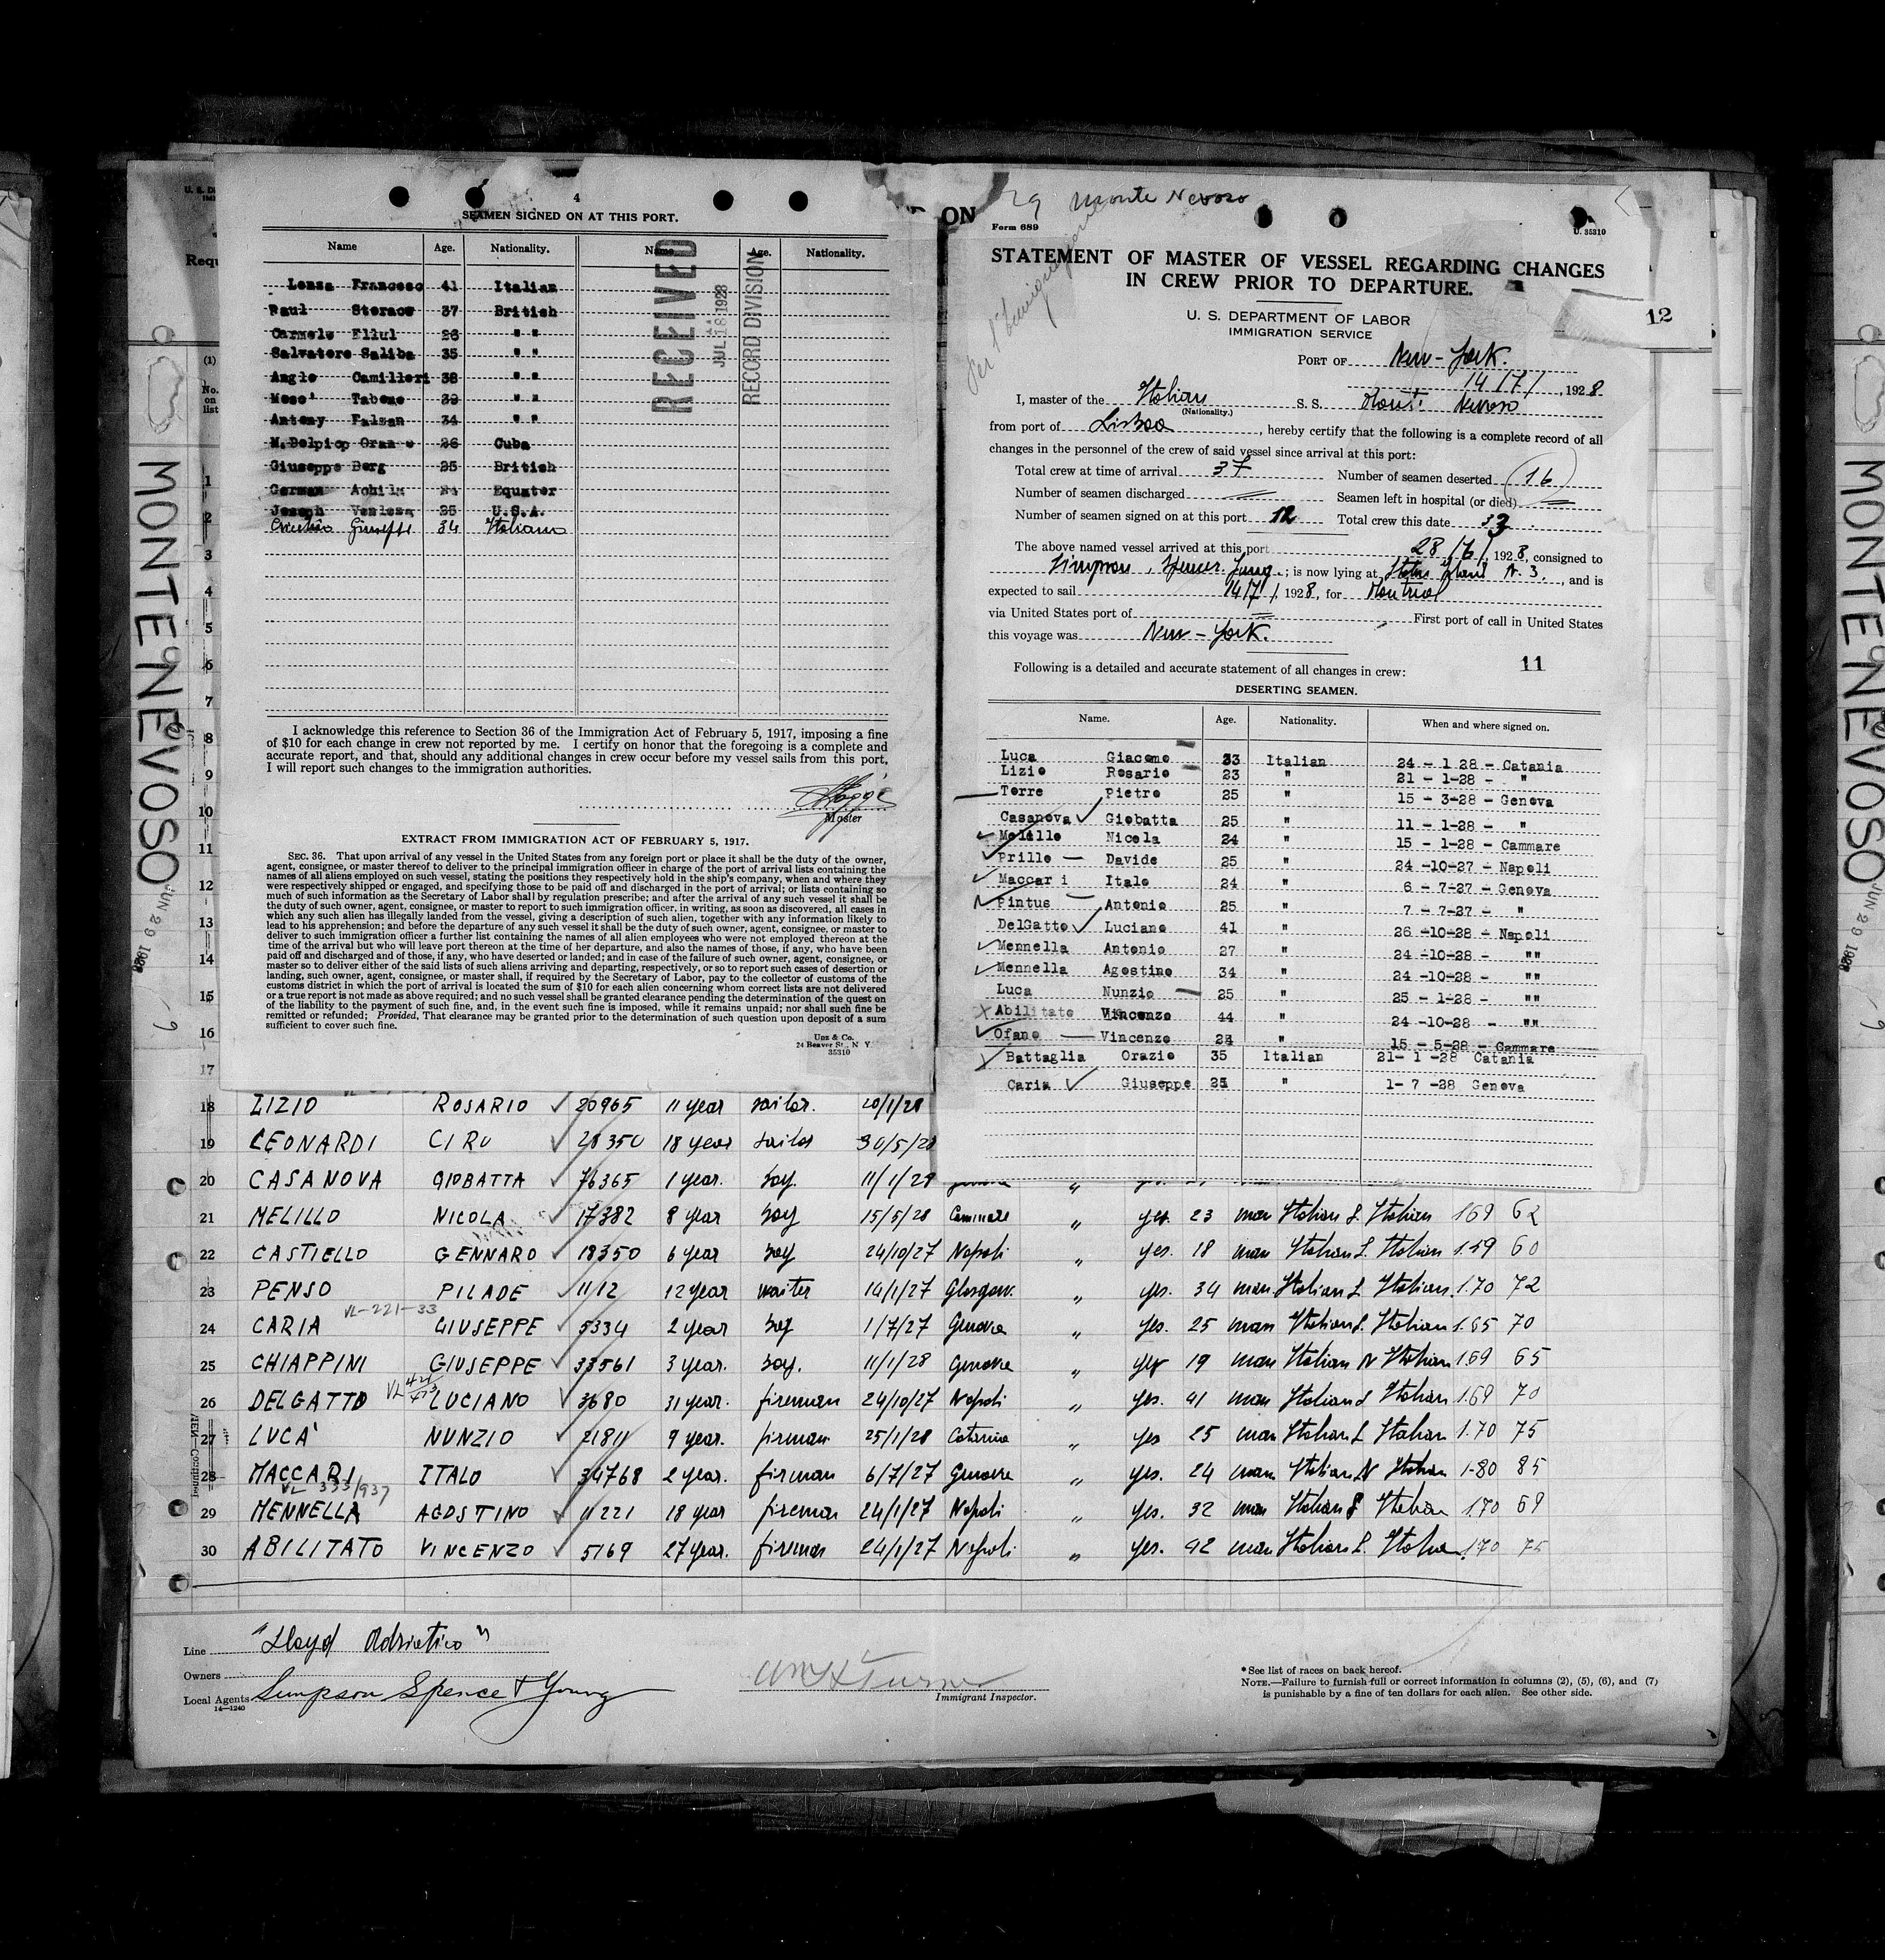 4
SEAMEN SIGNED ON AT THIS PORT.
Name Age. Nationality. Name Age. Nationality.
Francesc 41 Italian
Paul Storace 37 British
Carmelo Ellul 26 " "
Salvatore Saliba 35 " "
Anglo Camilleri 38 " "
Tabone 39 " "
Antony Falzan 34 " "
26 Cuba
Giuseppe Berg 25 British
German Equater
Joseph 25 U.S.A.
Giuseppe 34 Italiano
RECEIVED
JUL 18 1928
RECORD DIVISION
I acknowledge this reference to Section 36 of the Immigration Act of February 5, 1917, imposing a fine
of $10 for each change in crew not reported by me. I certify on honor that the foregoing is a complete and
accurate report, and that, should any additional changes in crew occur before my vessel sails from this port,
I will report such changes to the immigration authorities.
Master
EXTRACT FROM IMMIGRATION ACT OF FEBRUARY 5, 1917.
SEC. 36. That upon arrival of any vessel in the United States from any foreign port or place it shall be the duty of the owner,
agent, consignee, or master thereof to deliver to the principal immigration officer in charge of the port of arrival lists containing the
names of all aliens employed on such vessel, stating the positions they respectively hold in the ship's company, when and where they
were respectively shipped or engaged, and specifying those to be paid off and discharged in the port of arrival; or lists containing so
much of such information as the Secretary of Labor shall by regulation prescribe; and after the arrival of any such vessel it shall be
the duty of such owner, agent, consignee, or master to report to such immigration officer, in writing, as soon as discovered, all cases in
which any such alien has illegally landed from the vessel, giving a description of such alien, together with any information likely to
lead to his apprehension; and before the departure of any such vessel it shall be the duty of such owner, agent, consignee, or master to
deliver to such immigration officer a further list containing the names of all alien employees who were not employed thereon at the
time of the arrival but who will leave port thereon at the time of her departure, and also the names of those, if any, who have been
paid off and discharged and of those, if any, who have deserted or landed; and in case of the failure of such owner, agent, consignee, or
master so to deliver either of the said lists of such aliens arriving and departing, respectively, or so to report such cases of desertion or
landing, such owner, agent, consignee, or master shall, if required by the Secretary of Labor, pay to the collector of customs of the
customs district in which the port of arrival is located the sum of $10 for each alien concerning whom correct lists are not delivered
or a true report is not made as above required; and no such vessel shall be granted clearance pending the determination of the quest on
of the liability to the payment of such fine, and, in the event such fine is imposed, while it remains unpaid; nor shall such fine be
remitted or refunded; Provided, That clearance may be granted prior to the determination of such question upon deposit of a sum
sufficient to cover such fine.
Unz & Co.
24 Beaver St., N Y
35310
29 Monte Nevoso
Form 689
U. 35310
STATEMENT OF MASTER OF VESSEL REGARDING CHANGES
IN CREW PRIOR TO DEPARTURE.
U. S. DEPARTMENT OF LABOR
IMMIGRATION SERVICE
12
PORT OF New-York.
14/7/, 1928
I, master of the Italian S. S. Monte Nevoso
(Nationality.)
from port of Lisboa, hereby certify that the following is a complete record of all
changes in the personnel of the crew of said vessel since arrival at this port:
Total crew at time of arrival 37 Number of seamen deserted 16
Number of seamen discharged = Seamen left in hospital (or died) =
Number of seamen signed on at this port 12 Total crew this date 33
The above named vessel arrived at this port 28/6/, 1928, consigned to
Simpson, Spence. Young; is now lying at Staten Island N. 3, and is
expected to sail 14/7/, 1928, for Montreal
via United States port of = First port of call in United States
this voyage was New-York.
Following is a detailed and accurate statement of all changes in crew: 11
DESERTING SEAMEN.
Name. Age. Nationality. When and where signed on.
Luca Giacomo 33 Italian 24 - 1 28 - Catania
Lizio Rosario 23 " 21 - 1-28 - "
Torre Pietro 25 " 15 - 3-28 - Genova
Casanova Giobatta 25 " 11 - 1-28 - "
Melillo Nicola 24 " 15 - 1-28 - Cammare
Prillo Davide 25 " 24 -10-27 - Napoli
Maccar i Italo 24 " 6 - 7-27 - Genova
Pintus Antonio 25 " 7 - 7-27 - "
DelGatto Luciano 41 " 26 -10-28 - Napoli
Mennella Antonio 27 " 24 -10-28 - ""
Mennella Agostino 34 " 24 -10-28 - ""
Luca Nunzio 25 " 25 - 1-28 - ""
Abilitato Vincenzo 44 " 24 -10-28 - ""
Ofano Vincenzo 24 " 15 - 5-28 - Cammare
Battaglia Orazio 35 Italian 21- 1 -28 Catania
Caria Giuseppe 25 " 1- 7 -28 Genova
MONTENEVOSO
JUN 29 1928
18 LIZIO ROSARIO 20965 11 year sailor. 20/1/28
19 LEONARDI CIRO 28350 18 year sailor 30/5/28
20 CASANOVA GIOBATTA 76365 1 year. boy. 11/1/28
21 MELILLO NICOLA 17382 8 year boy 15/5/28 Cammare " yes. 23 man Italian S. Italian 169 62
22 CASTIELLO GENNARO 18350 6 year boy 24/10/27 Napoli " yes. 18 man Italian S. Italian 1.59 60
23 PENSO PILADE 1112 12 year waiter 14/1/27 Glasgow. " yes. 34 man Italian S. Italian 1.70 72
VL-221-33
24 CARIA GIUSEPPE 5334 2 year boy 1/7/27 Genova " yes. 25 man Italian S. Italian 1.65 70
25 CHIAPPINI GIUSEPPE 33561 3 year. boy. 11/1/28 Genova " yes 19 man Italian N Italian 169 65
26 DELGATTO LUCIANO 3680 31 year. fireman 24/10/27 Napoli " yes. 41 man Italian S Italian 1.69 70
27 LUCA' NUNZIO 21811 9 year. fireman 25/1/28 Catania " yes 25 man Italian S Italian 1.70 75
28 MACCARI ITALO 34768 2 year. fireman 6/7/27 Genova " yes. 24 man Italian N Italian 1-80 85
VL 333/937
29 MENNELLA AGOSTINO 11221 18 year fireman 24/1/27 Napoli " yes. 32 man Italian S Italian 170 69
30 ABILITATO VINCENZO 5169 27 year. fireman 24/1/27 Napoli " yes. 42 man Italian S. Italian 170 75
Line "Lloyd Adriatico"
Owners
Local Agents Simpson Spence & Young
14—1240
Wm H Turner
Immigrant Inspector.
*See list of races on back hereof.
NOTE.—Failure to furnish full or correct information in columns (2), (5), (6), and (7)
is punishable by a fine of ten dollars for each alien. See other side.